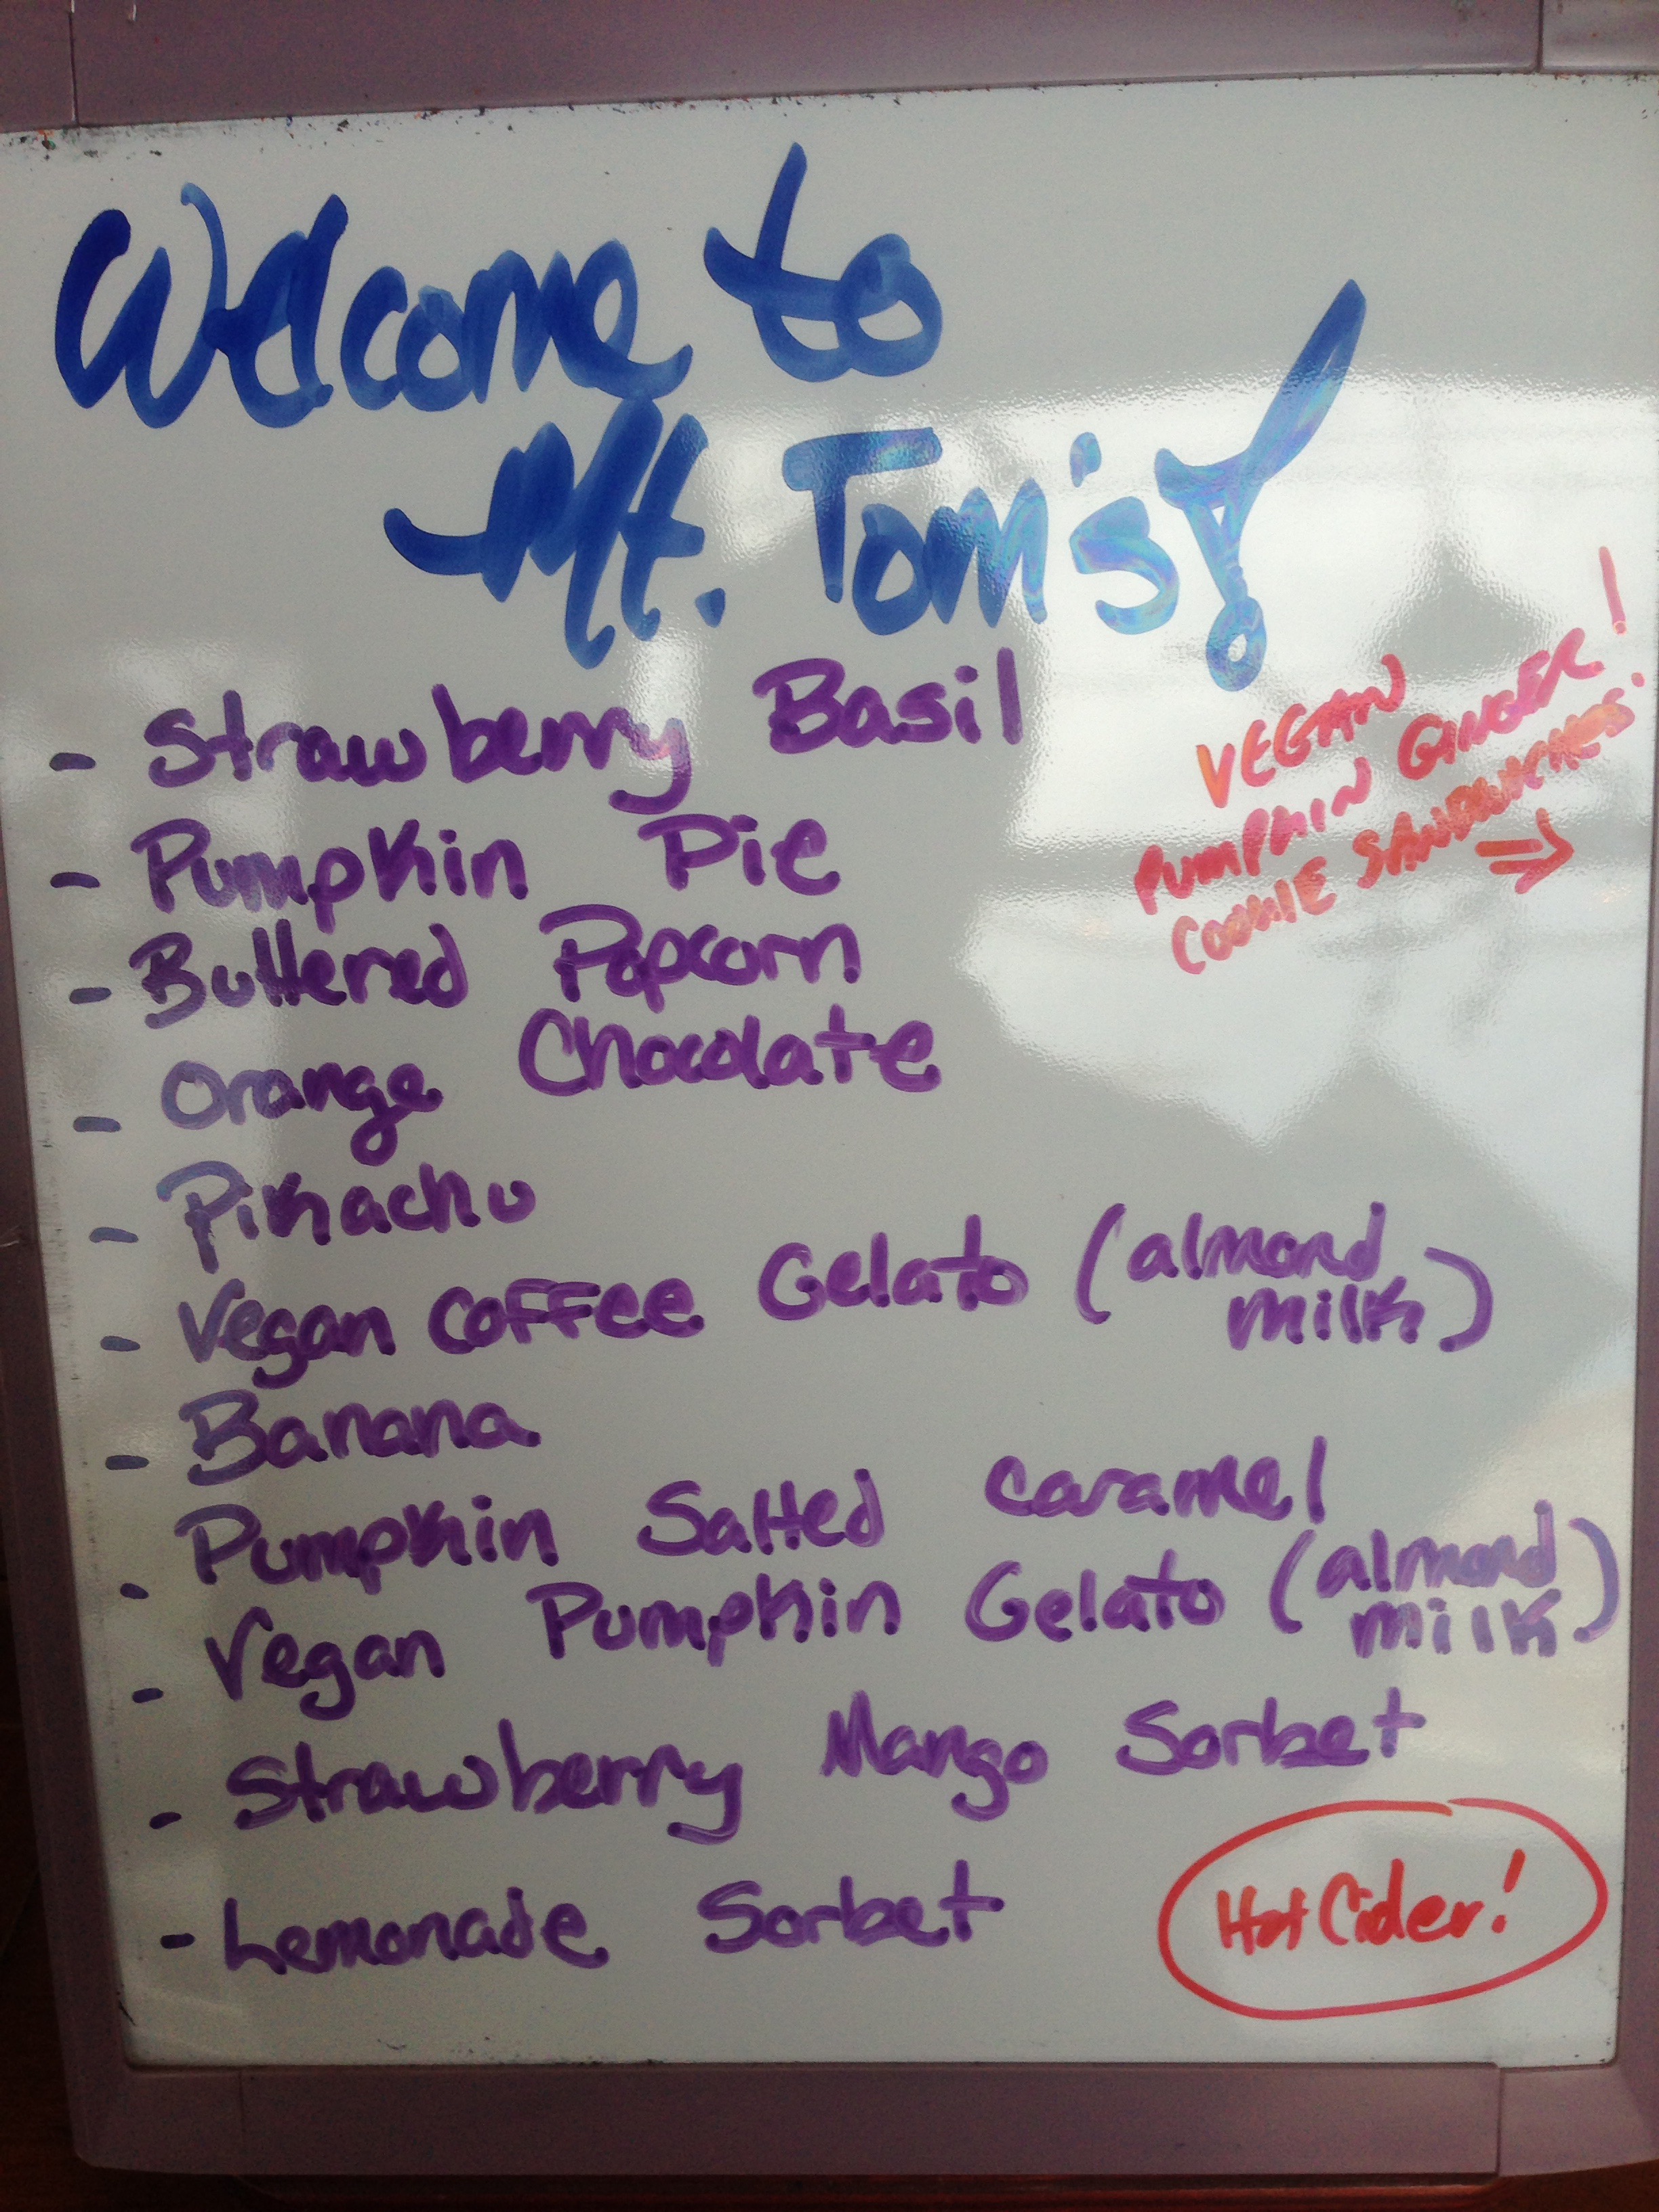 Welcome to
Mt. Tom's!
- Strawberry Basil
- Pumpkin Pie
- Buttered Popcorn
- Orange Chocolate
- Pikachu
- Vegan Coffee Gelato (almond
milk)
- Banana
- Pumpkin Salted Caramel
- Vegan Pumpkin Gelato (almond
milk)
- Strawberry Mango Sorbet
- Lemonade Sorbet
VEGAN
PUMPKIN GINGER
COOKIE SANDWICHES!
⇒
Hot Cider!